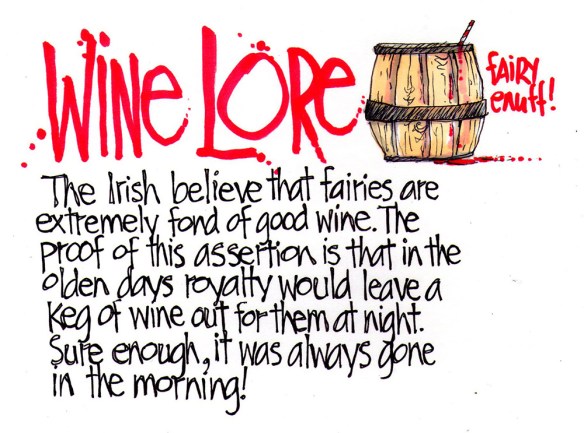 Wine Lore
FAiRY
enuff!
The Irish believe that fairies are
extremely fond of good wine. The
proof of this assertion is that in the
olden days royalty would leave a
keg of wine out for them at night.
Sure enough, it was always gone
in the morning!